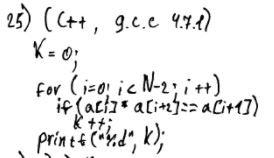 25) (C++, g.c.c 4.7.1)
K = 0;
for (i=0; i< N-2; i++)
if (a[i]* a[i+2]==a[i+1])
k++;
printf("%d", K);